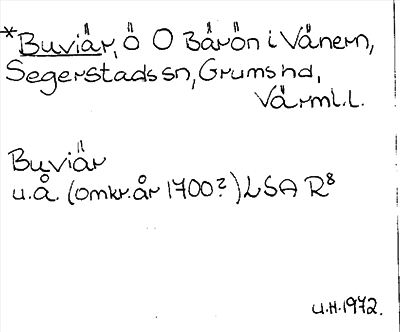 *Buviär, ö O Bärön i Vänern,
Segerstads sn, Grums hd,
Värml.l.
Buviär
u.å. (omkr. år 1700?) LSA R8
U.H. 1972.